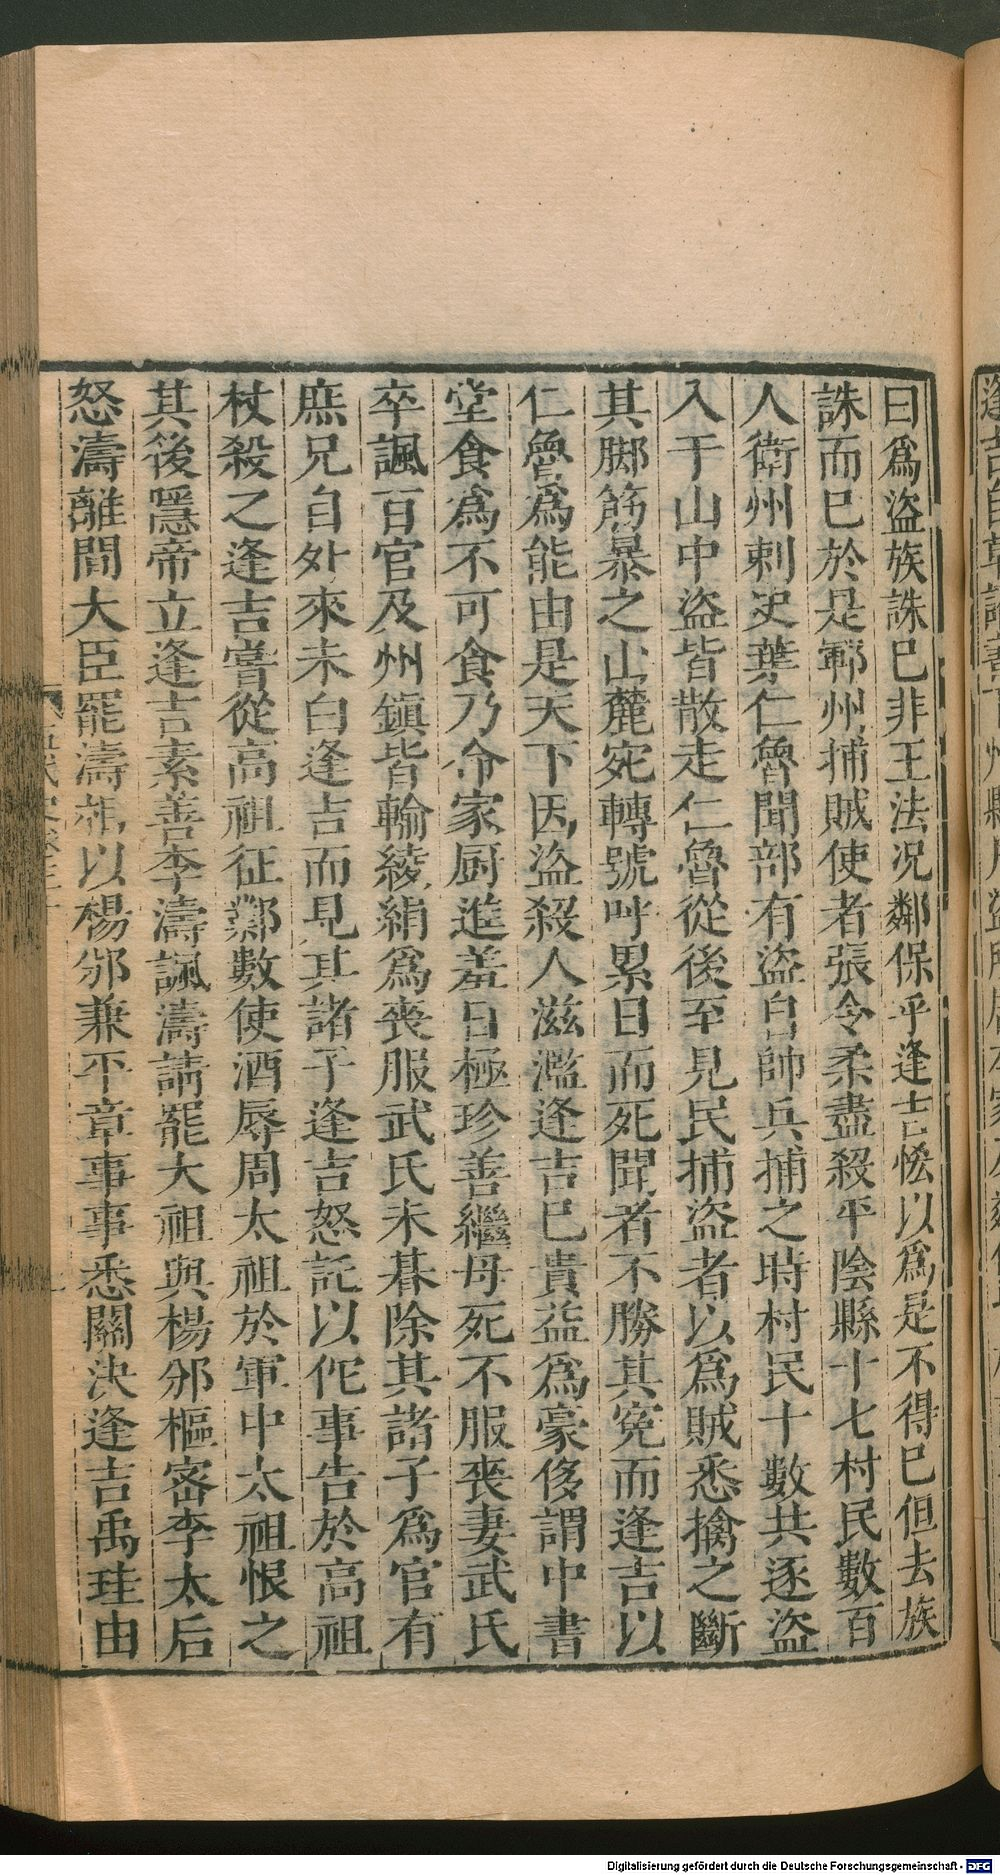 曰爲盜族誅已非王法况鄰保乎逢吉恡以爲是不得已但去族
誅而已於是鄆州捕賊使者張令柔盡殺平陰縣十七村民數百
人衛州刺史葉仁魯聞部有盜自帥兵捕之時村民十數共逐盜
入于山中盜皆散走仁魯從後至見民捕盜者以爲賊悉擒之斷
其脚筋暴之山麓宛轉號呼累日而死聞者不勝其寃而逢吉以
仁魯爲能由是天下因盜殺人滋濫逢吉已貴益爲豪侈謂中書
堂食爲不可食乃命家厨進羞日極珍善繼母死不服喪妻武氏
卒諷百官及州鎮皆輸綾絹爲喪服武氏未朞除其諸子爲官有
庶兄自外來未白逢吉而見其諸子逢吉怒託以佗事告於高祖
杖殺之逢吉嘗從高祖征鄴數使酒辱周太祖於軍中太祖恨之
其後隱帝立逢吉素善李濤諷濤請罷太祖與楊邠樞密李太后
怒濤離間大臣罷濤相以楊邠兼平章事事悉關決逢吉禹珪由
Digitalisierung gefördert durch die Deutsche Forschungsgemeinschaft - DFG